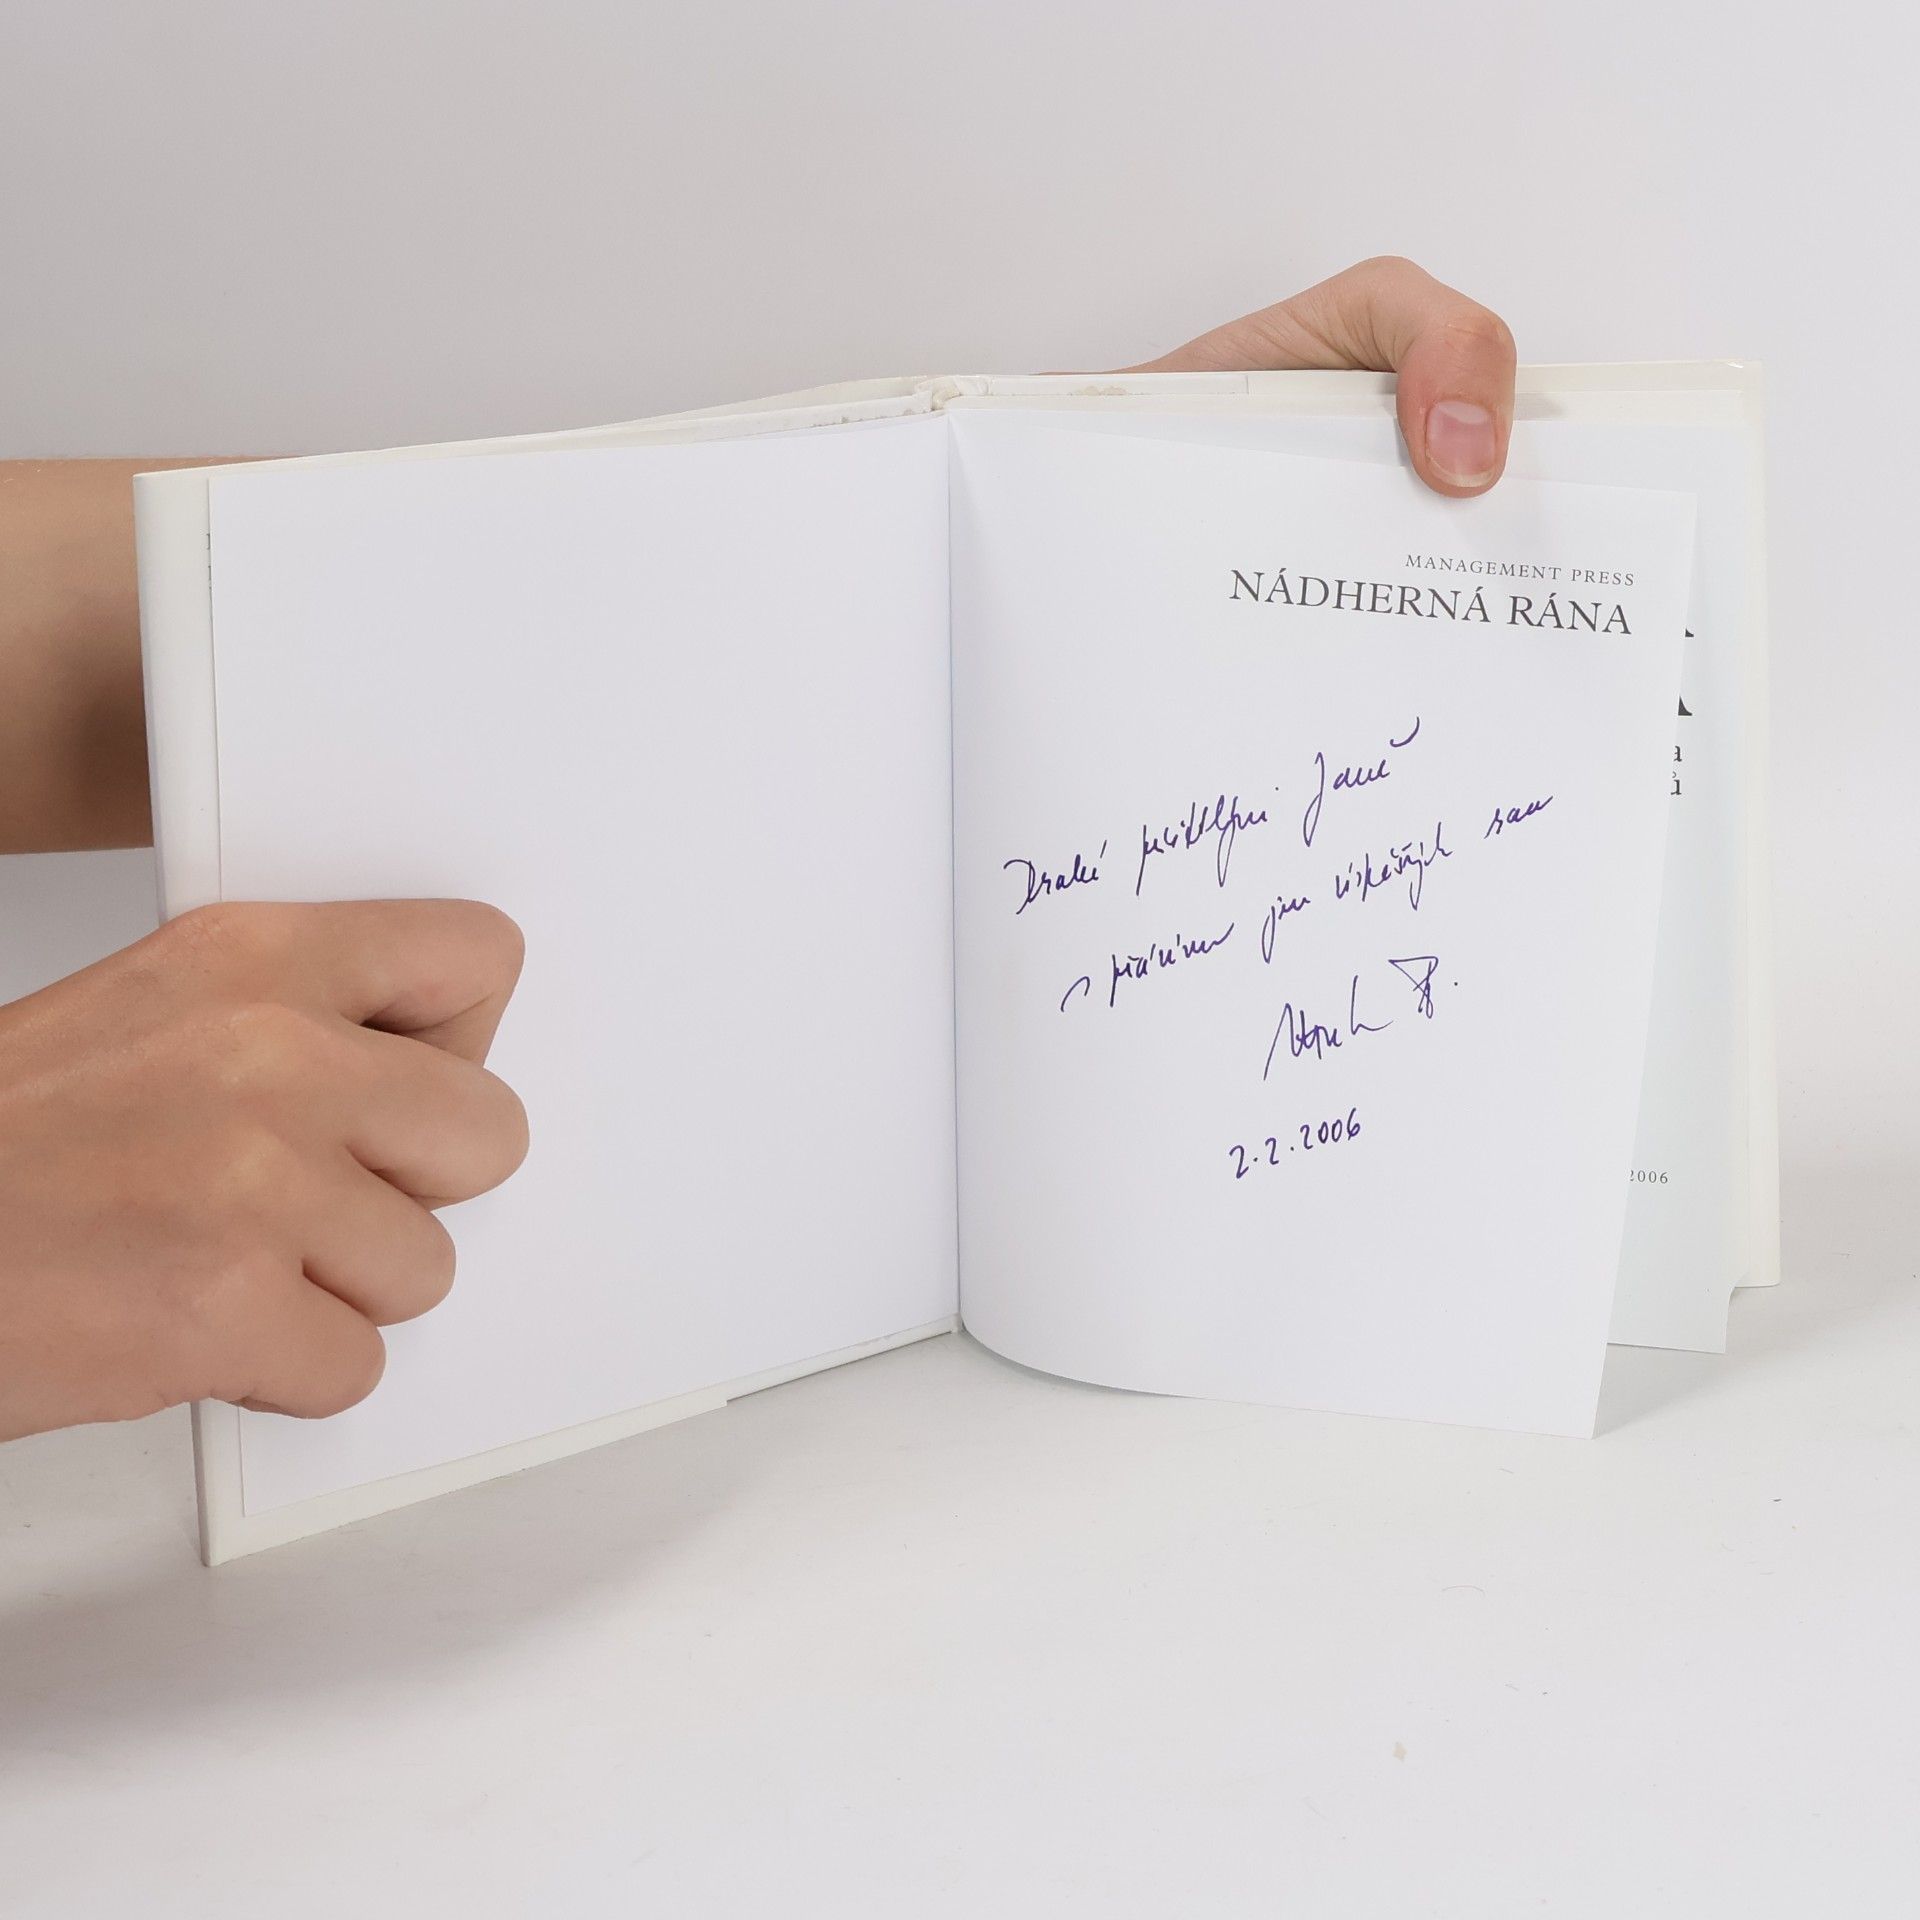 MANAGEMENT PRESS
NÁDHERNÁ RÁNA
Drahé přítelkyni Janě
s přáním jen úspěšných ran
2.2.2006
a
ů
2006